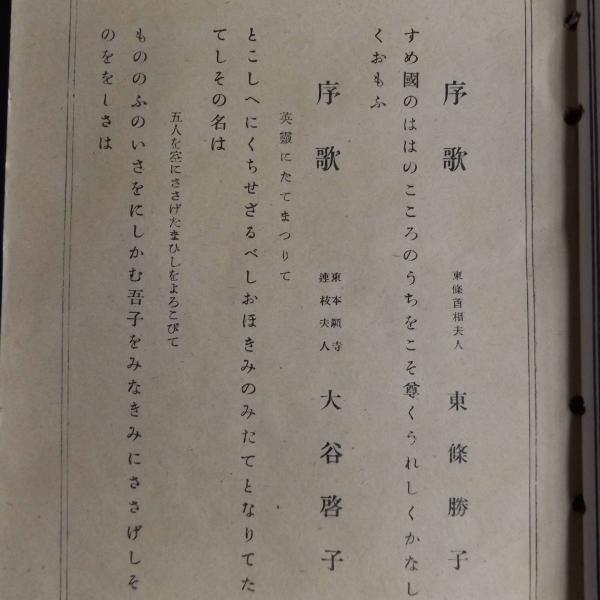 序歌　東條首相夫人　東條勝子
すめ國のははのこころのうちをこそ尊くうれしくかなし
くおもふ
序歌　東本願寺連枝夫人　大谷啓子
英靈にたてまつりて
とこしへにくちせざるべしおほきみのみたてとなりてた
てしその名は
五人を空にささげたまひしをよろこびて
もののふのいさをにしかむ吾子をみなきみにささげしそ
のををしさは